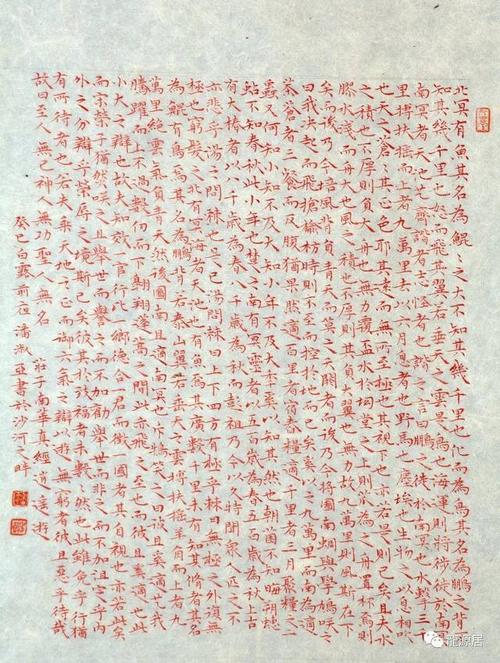 北冥有魚其名為鯤〻之大不知其幾千里也化而為鳥其名為鵬〻之背不
知其幾千里也怒而飛其翼若垂天之雲是鳥也海運則將徙於南冥
南冥者天池也齊諧者志怪者也諧之言曰鵬之徙於南冥也水擊三千
里摶扶搖而上者九萬里去以六月息者也野馬也塵埃也生物之以息相吹
也天之蒼〻其正色耶其遠而無所至極耶其視下也亦若是則已矣且夫水
之積也不厚則負大舟也無力覆盃水於坳堂之上則芥為之舟置杯焉則
膠水淺而舟大也風之積也不厚則其負大翼也無力故九萬里則風斯在下
矣而後乃今培風背負青天而莫之夭閼者而後乃今將圖南蜩與學鳩咲之
曰我決起而飛搶榆枋時則不至而控於地而已矣奚以之九萬里而南為適
莽蒼者三飡而反腹猶果然適百里者宿舂糧適千里者三月聚糧之二
蟲又何知小知不及大知小年不及大年奚以知其然也朝菌不知晦朔蟪
蛄不知春秋此小年也楚之南有冥靈者以五百歲為春五百歲為秋上古
有大椿者以八千歲為春八千歲為秋而彭祖乃今以久特聞衆人匹之不
亦悲乎湯之問棘也是已湯問棘曰上下四方有極乎棘曰無極之外復無
極也窮髮之北有冥海者天池也有魚焉其廣數千里未有知其脩者其名
為鯤有鳥焉其名為鵬背若泰山翼若垂天之雲摶扶搖羊角而上者九
萬里絕雲氣負青天然後圖南且適南冥也斥鴳笑之曰彼且奚適也我
騰躍而上不過數仞而下翱翔蓬蒿之間此亦飛之至也而彼且奚適也此
小大之辯也故夫知效一官行比一鄉德合一君而徵一國者其自視也亦若此矣
而宋榮子猶然咲之且舉世而譽之而不加勸舉世而非之而不加沮定乎內
外之分辯乎榮辱之境斯已矣彼其於致福者未數〻然也此雖免乎行猶
有所待者也若夫乘天地之正而御六氣之辯以遊無窮者彼且惡乎待哉
故曰至人無己神人無功聖人無名 莊子南華真經逍遙遊
癸巳白露前夜潘淑亞書於沙河之畔
龍源居